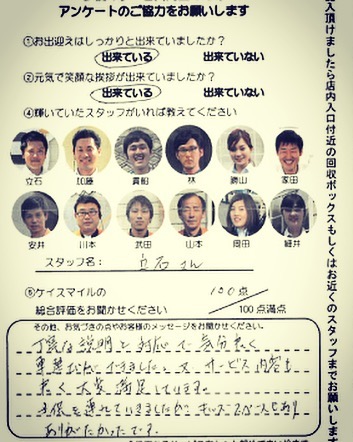 アンケートのご協力をお願いします
①お出迎えはしっかりと出来ていましたか？
出来ている 出来ていない
②元気で笑顔な挨拶が出来ていましたか？
出来ている 出来ていない
④輝いていたスタッフがいれば教えてください
立石 加藤 貴船 林 勝山 家田
安井 川本 武田 山本 周田 細井
スタッフ名： 立石さん
⑤ケイスマイルの
総合評価をお聞かせください 100点 / 100点満点
その他、お気づきの点やお客様のメッセージをお聞かせください。
丁寧な説明と対応で気分良く
車選びができました。又、サービス内容も
良く大変満足しています。
子供を連れていきましたが、キッズスペースもあり
ありがたかったです。
入頂けましたら店内入口付近の回収ボックスもしくはお近くのスタッフまでお願いします